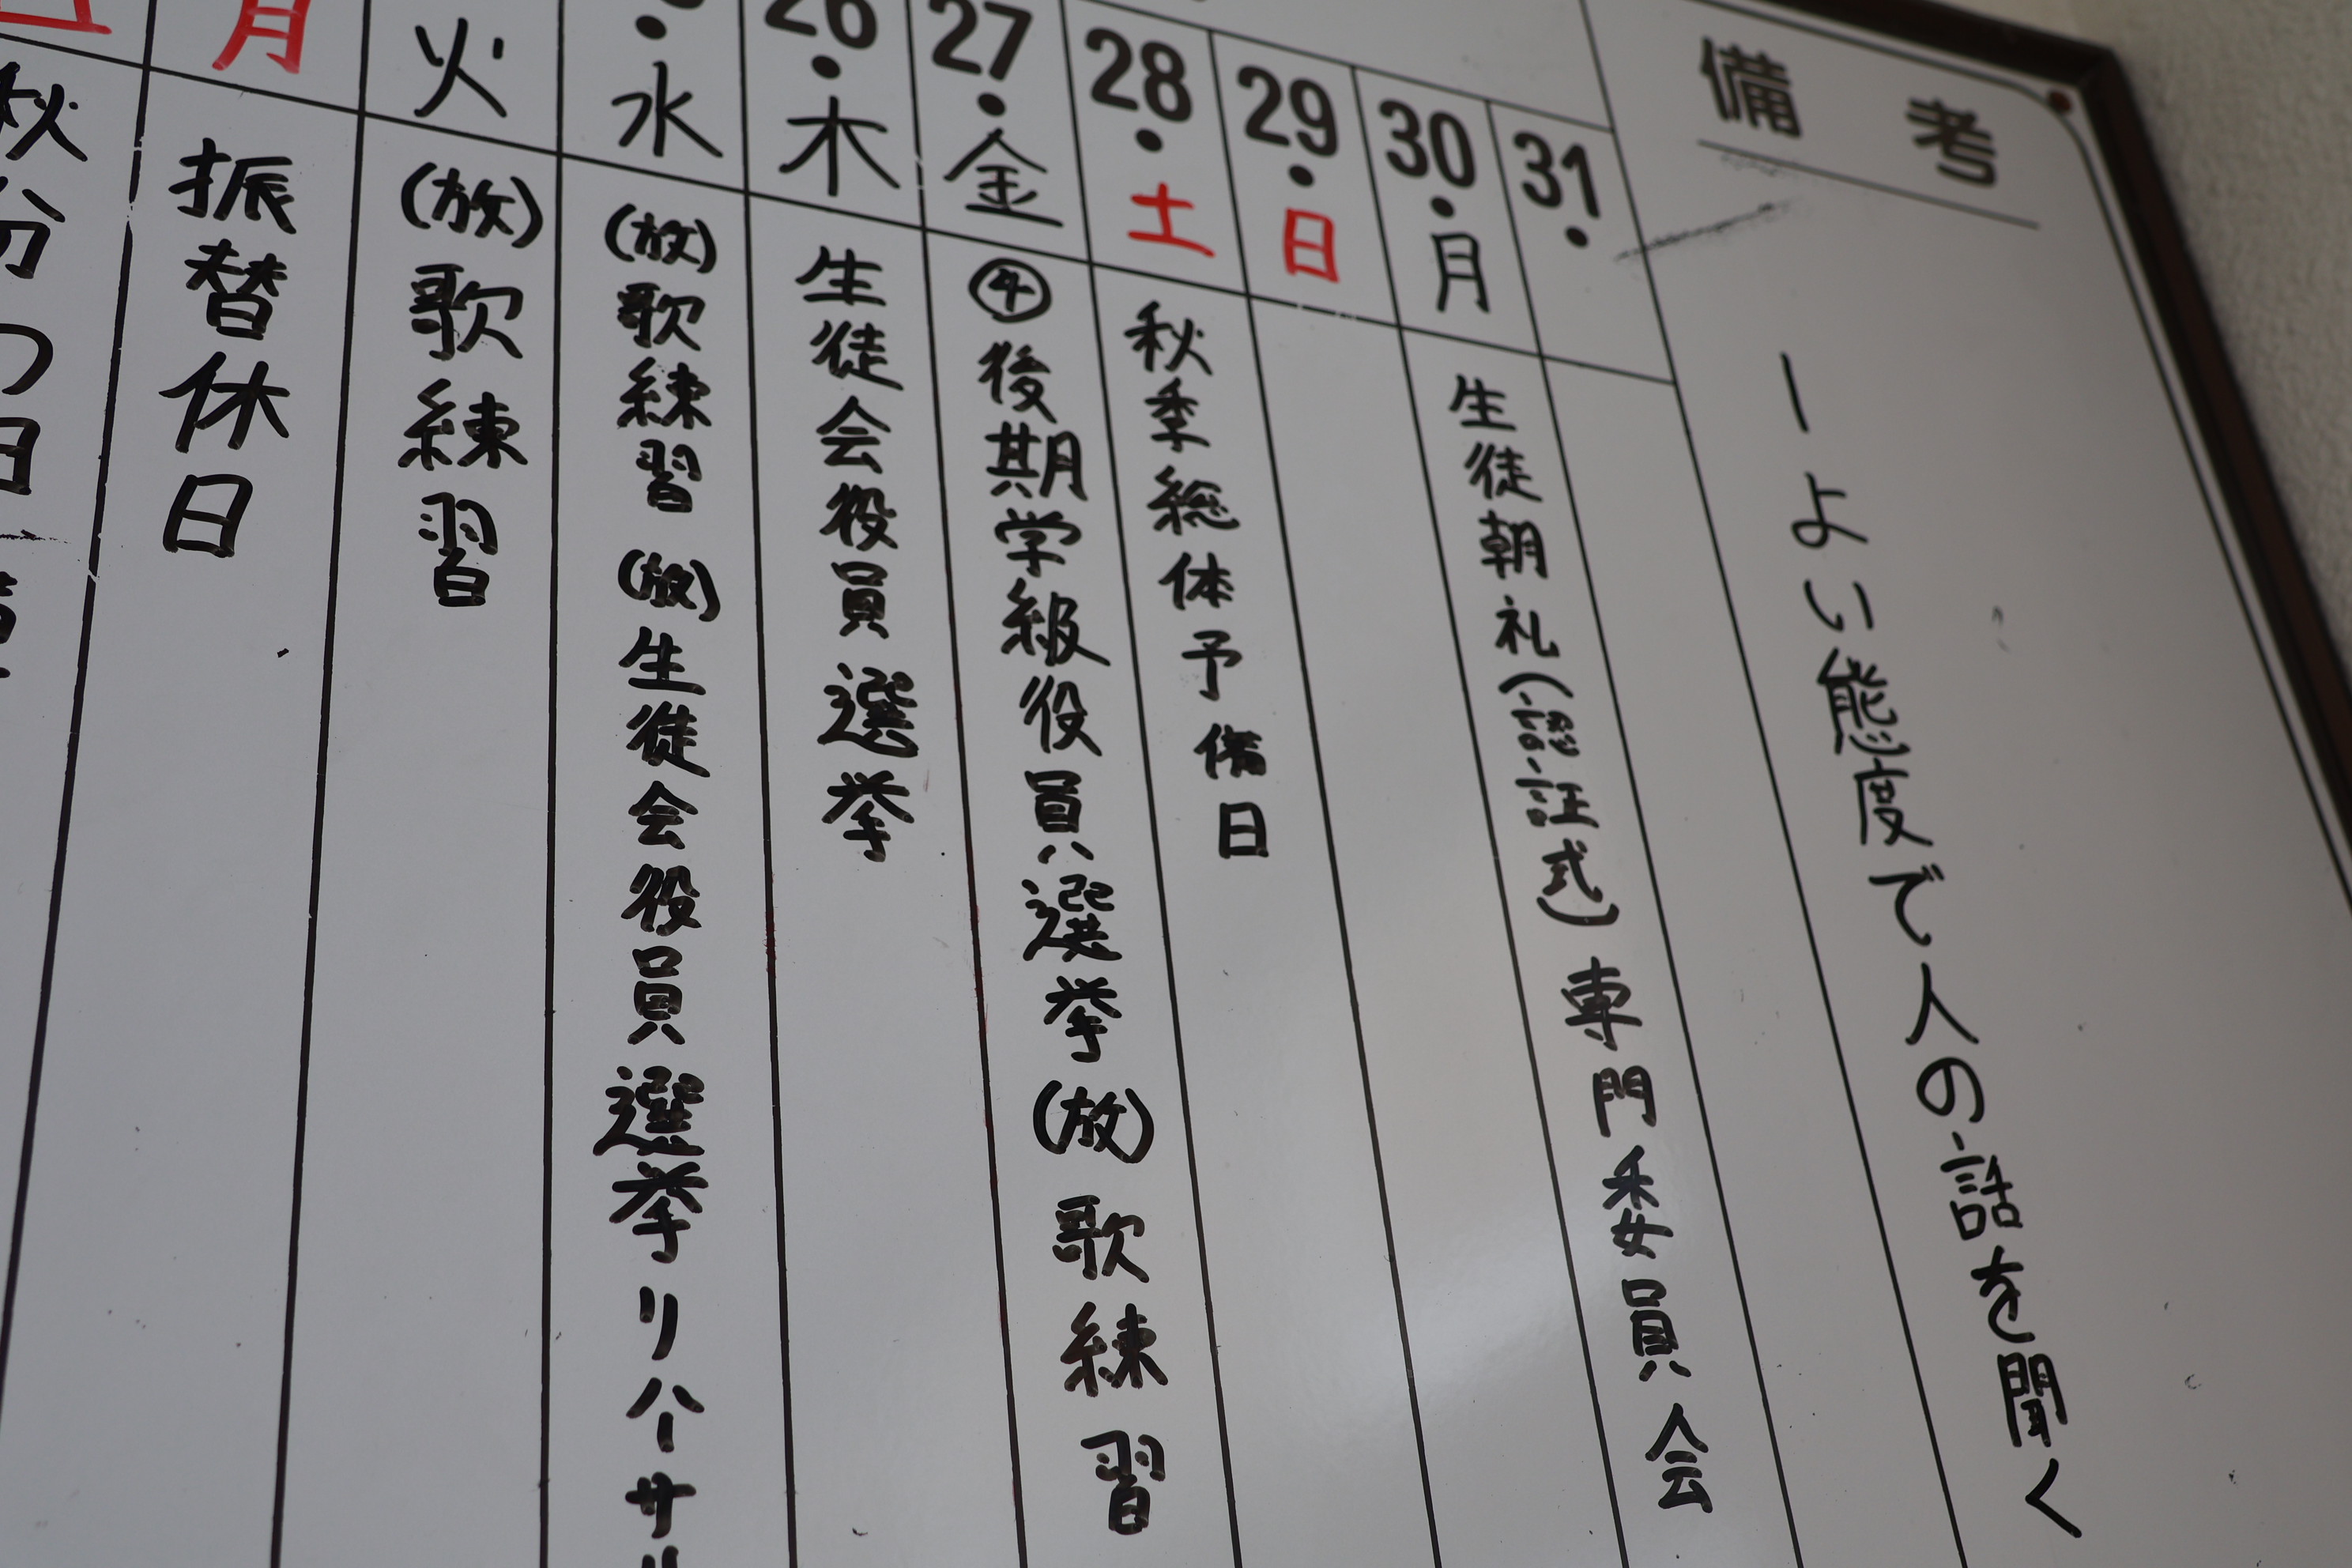 日
秋分の日
月
振替休日
火
(放)歌練習
・水
(放)歌練習 (放)生徒会役員選挙リハーサル
26・木
生徒会役員選挙
27・金
④後期学級役員選挙(放)歌練習
28・土
秋季総体予備日
29・日
30・月
生徒朝礼(認証式)専門委員会
31・
備考
ーよい態度で人の話を聞く